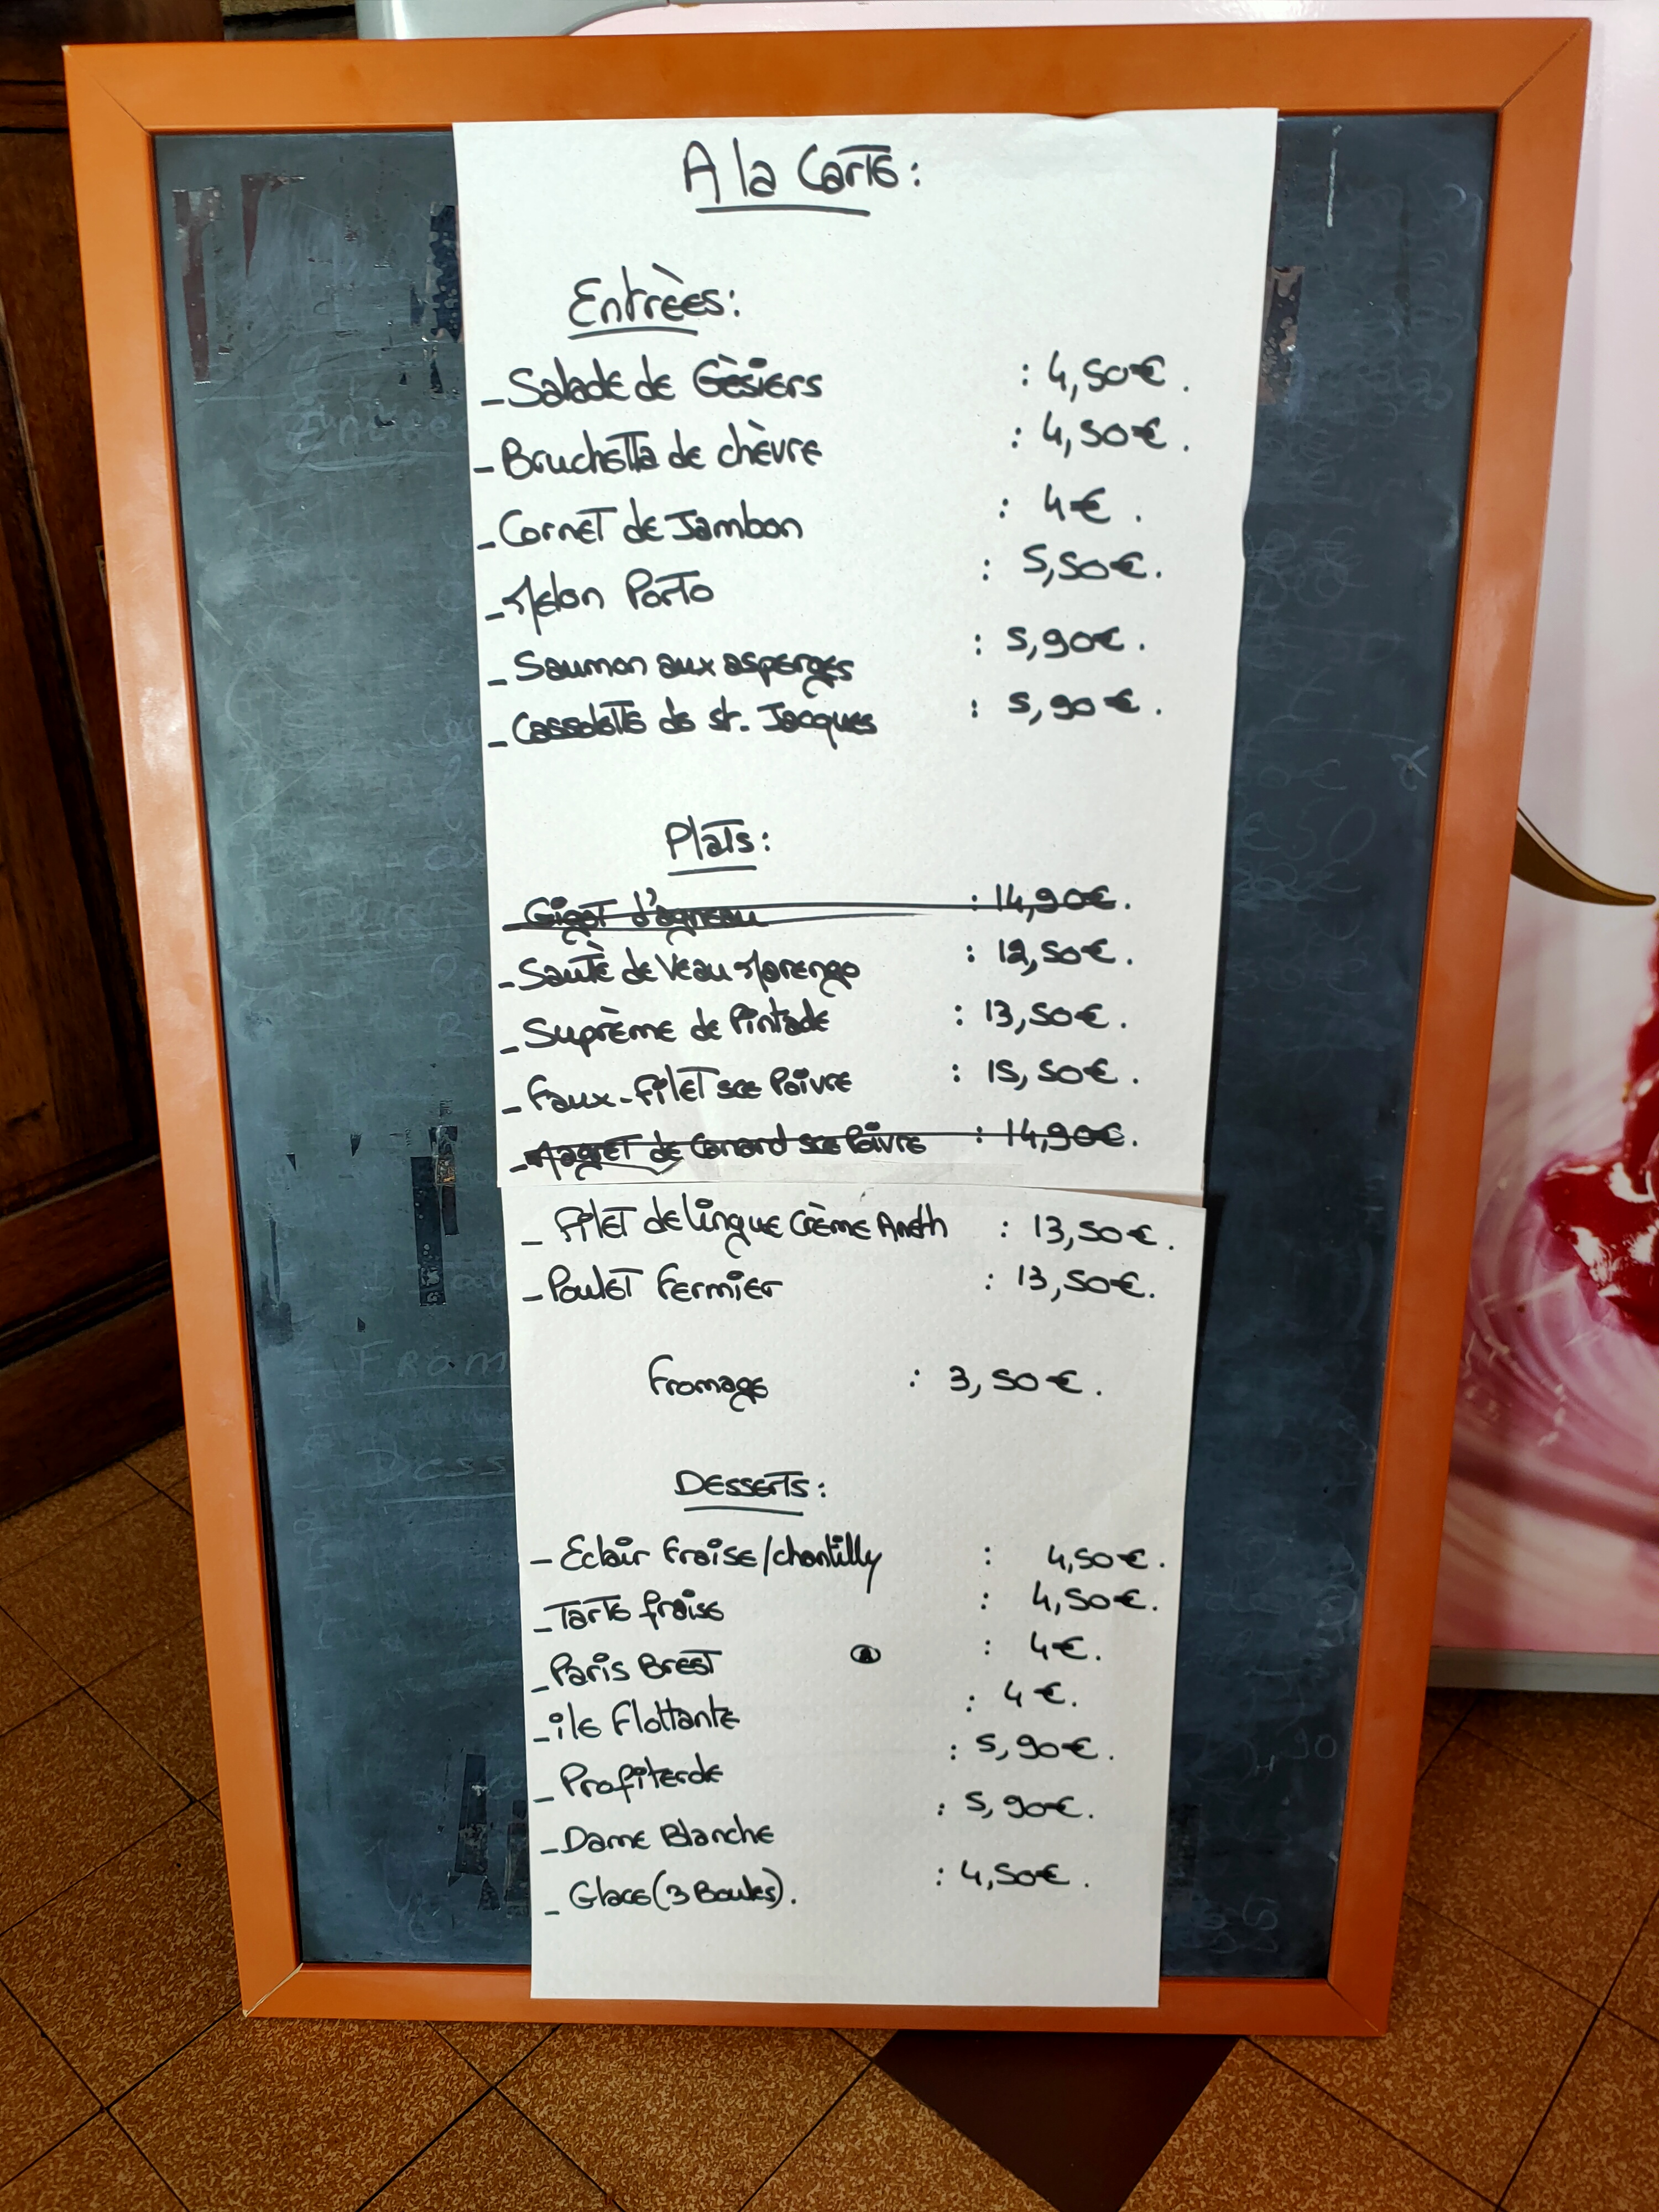 A la Carte :
Entrèes :
- Salade de Gèsiers : 4,50€.
- Bruchetta de chèvre : 4,50€.
- Cornet de Jambon : 4€.
- Melon Porto : 5,50€.
- Saumon aux asperges : 5,90€.
- Cassolette de st. Jacques : 5,90€.
Plats :
- Gigot d'agneau : 14,90€.
- Sautè de Veau Marengo : 12,50€.
- Suprème de Pintade : 13,50€.
- Faux-filet sce Poivre : 15,50€.
- Magret de Canard sce Poivre : 14,90€.
- Filet de lingue Crème Aneth : 13,50€.
- Poulet Fermier : 13,50€.
Fromage : 3,50€.
Desserts :
- Eclair Fraise/chantilly : 4,50€.
- Tarte fraise : 4,50€.
- Paris Brest : 4€.
- ile Flottante : 4€.
- Profiterole : 5,90€.
- Dame Blanche : 5,90€.
- Glace (3 Boules). : 4,50€.
From
Dess